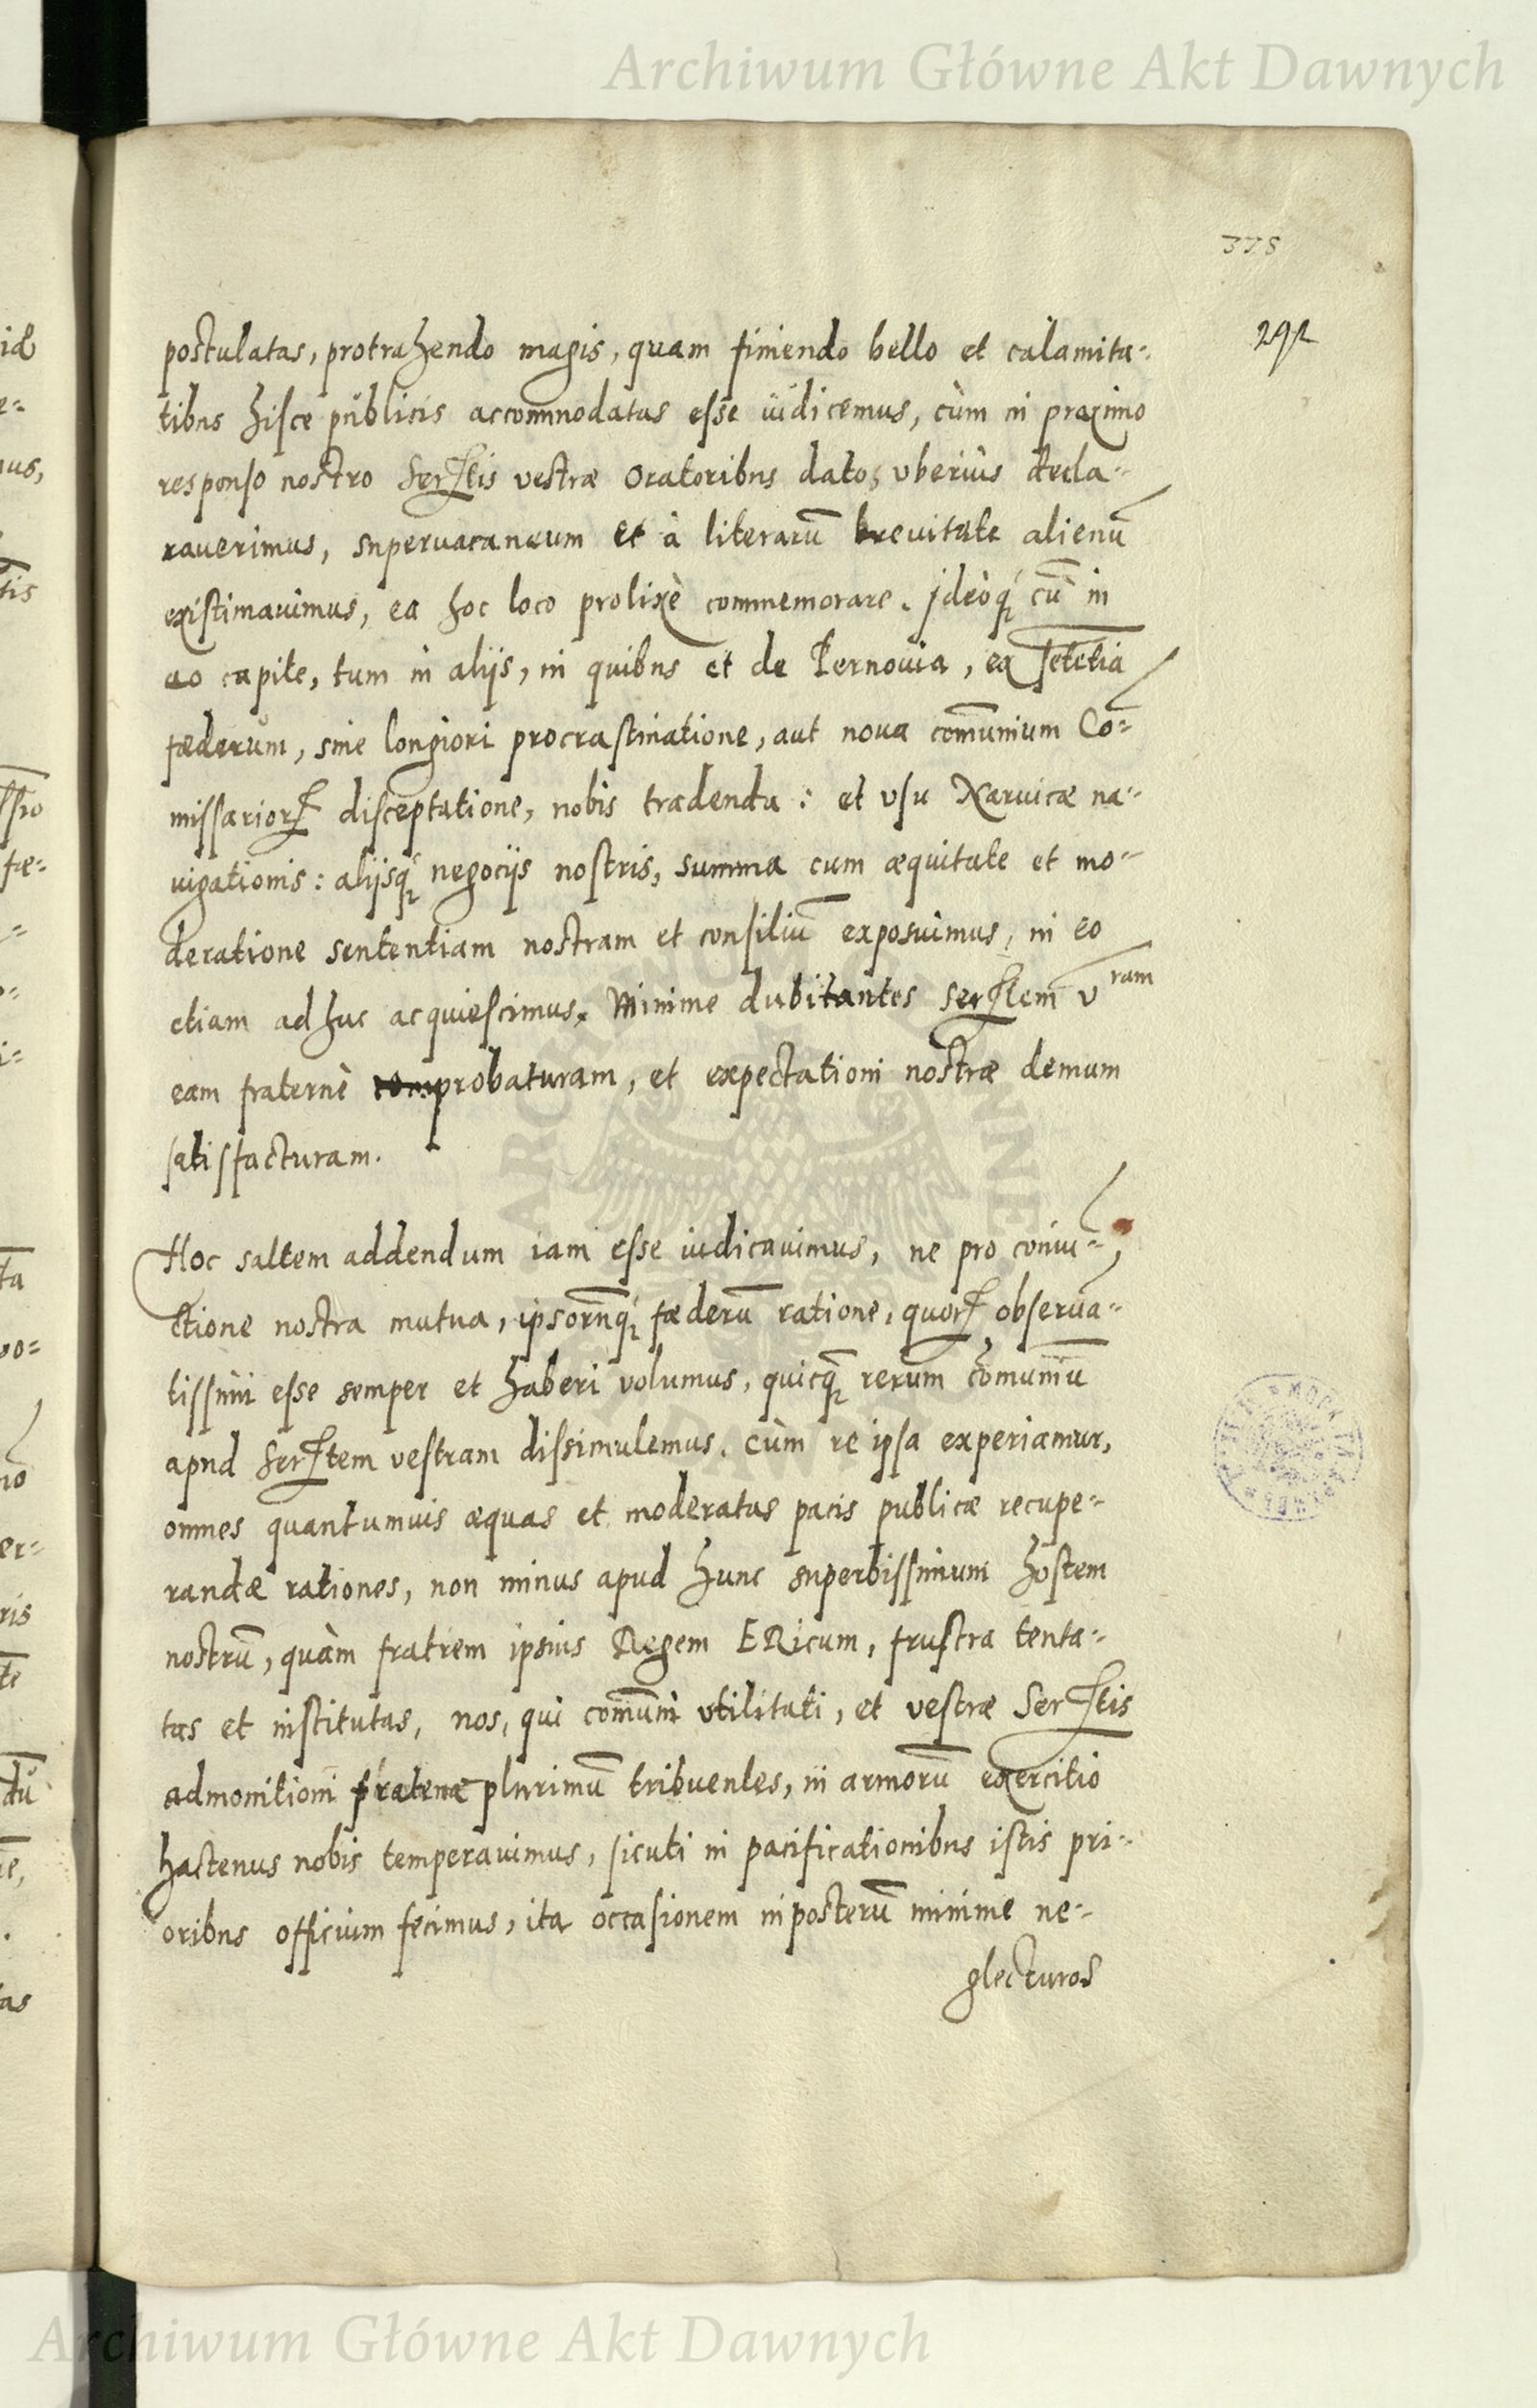 Archiwum Główne Akt Dawnych
378
292
postulatas, protrahendo magis, quam finiendo bello et calamita=
tibus hisce publicis accommodatas esse iudicemus, cùm in proximo
responso nostro Serᵗⁱˢ vestræ Oratoribus dato, vberiùs decla=
rauerimus, superuacaneum et à literarū breuitate alienū
existimauimus, ea hoc loco prolixè commemorare. Jdeòq́ꝫ cū in
eo capite, tum in alijs, in quibus et de Pernouia, ex sētētia
fœderum, sine longiori procrastinatione, aut noua comūnium Co=
missariorꝝ disceptatione, nobis tradenda: et vsu Naruicæ na=
uigationis: alijsq́ꝫ negocijs nostris, summa cum æquitate et mo=
deratione sententiam nostram et consiliū exposuimus, in eo
etiam adhuc acquiescimus. Minime dubitantes Serᵗᵉᵐ vʳᵃᵐ
eam fraternè comprobaturam, et expectationi nostræ demum
satisfacturam.
Hoc saltem addendum iam esse iudicauimus, ne pro coniu=
ctione nostra mutua, ipsorūq́ꝫ fœderū ratione, quorꝝ observa=
tissimi esse semper et haberi volumus, quicq̄ꝫ rerum comuniū
apud Serᵗᵉᵐ vestram dissimulemus. Cùm re ipsa experiamur,
omnes quantumuis æquas et moderatas pacis publicæ recupe=
randæ rationes, non minus apud hunc superbissimum hostem
nostrū, quàm fratrem ipsius Regem ERicum, frustra tenta=
tas et institutas, nos, qui comūni vtilitati, et vestræ Serᵗⁱˢ
admonitioni fraternæ plurimū tribuentes, in armorū exercitio
hactenus nobis temperauimus, sicuti in pacificationibus istis pri=
oribus officium fecimus, ita occasionem inposterū minime ne=
glecturos
Archiwum Główne Akt Dawnych